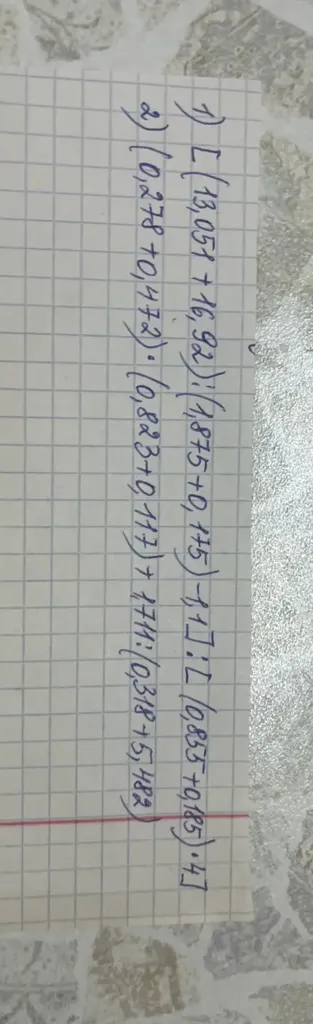 1) [(13,051+16,92):(1,875+0,175)-1,1]:[(0,855+0,185)·4]
2) (0,278+0,472)·(0,823+0,117)+1,711:(0,318+5,482)